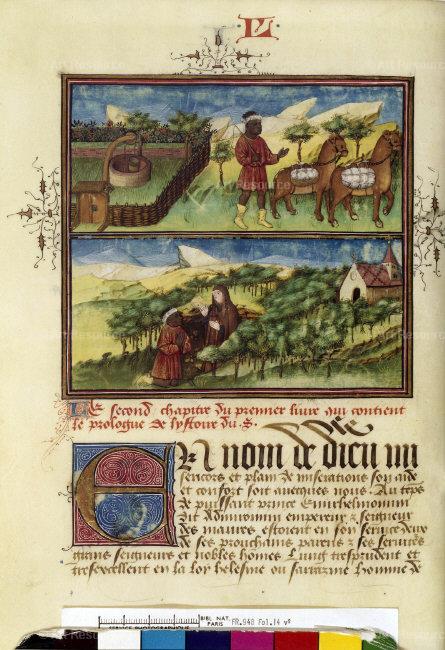 Le second chapitre du premier livre qui contient
le prologue de lystoire du .S.
En nom de dieu mi
sericors et plain de miseracions son aide
et confort soit avecques nous. Au tẽps
de puissant prince
dit empereur et seigneur
des maures estoient en son service deux
de ses prochains parens et ses serviteurs
grans seigneurs et nobles hõmes. Lung tresprudent et
tresexcellent en la loy ou sarrazine homme de
BIBL. NAT.
PARIS
FR.948 Fol.14 v°
SERVICE PHOTOGRAPHIQUE
Art Resource